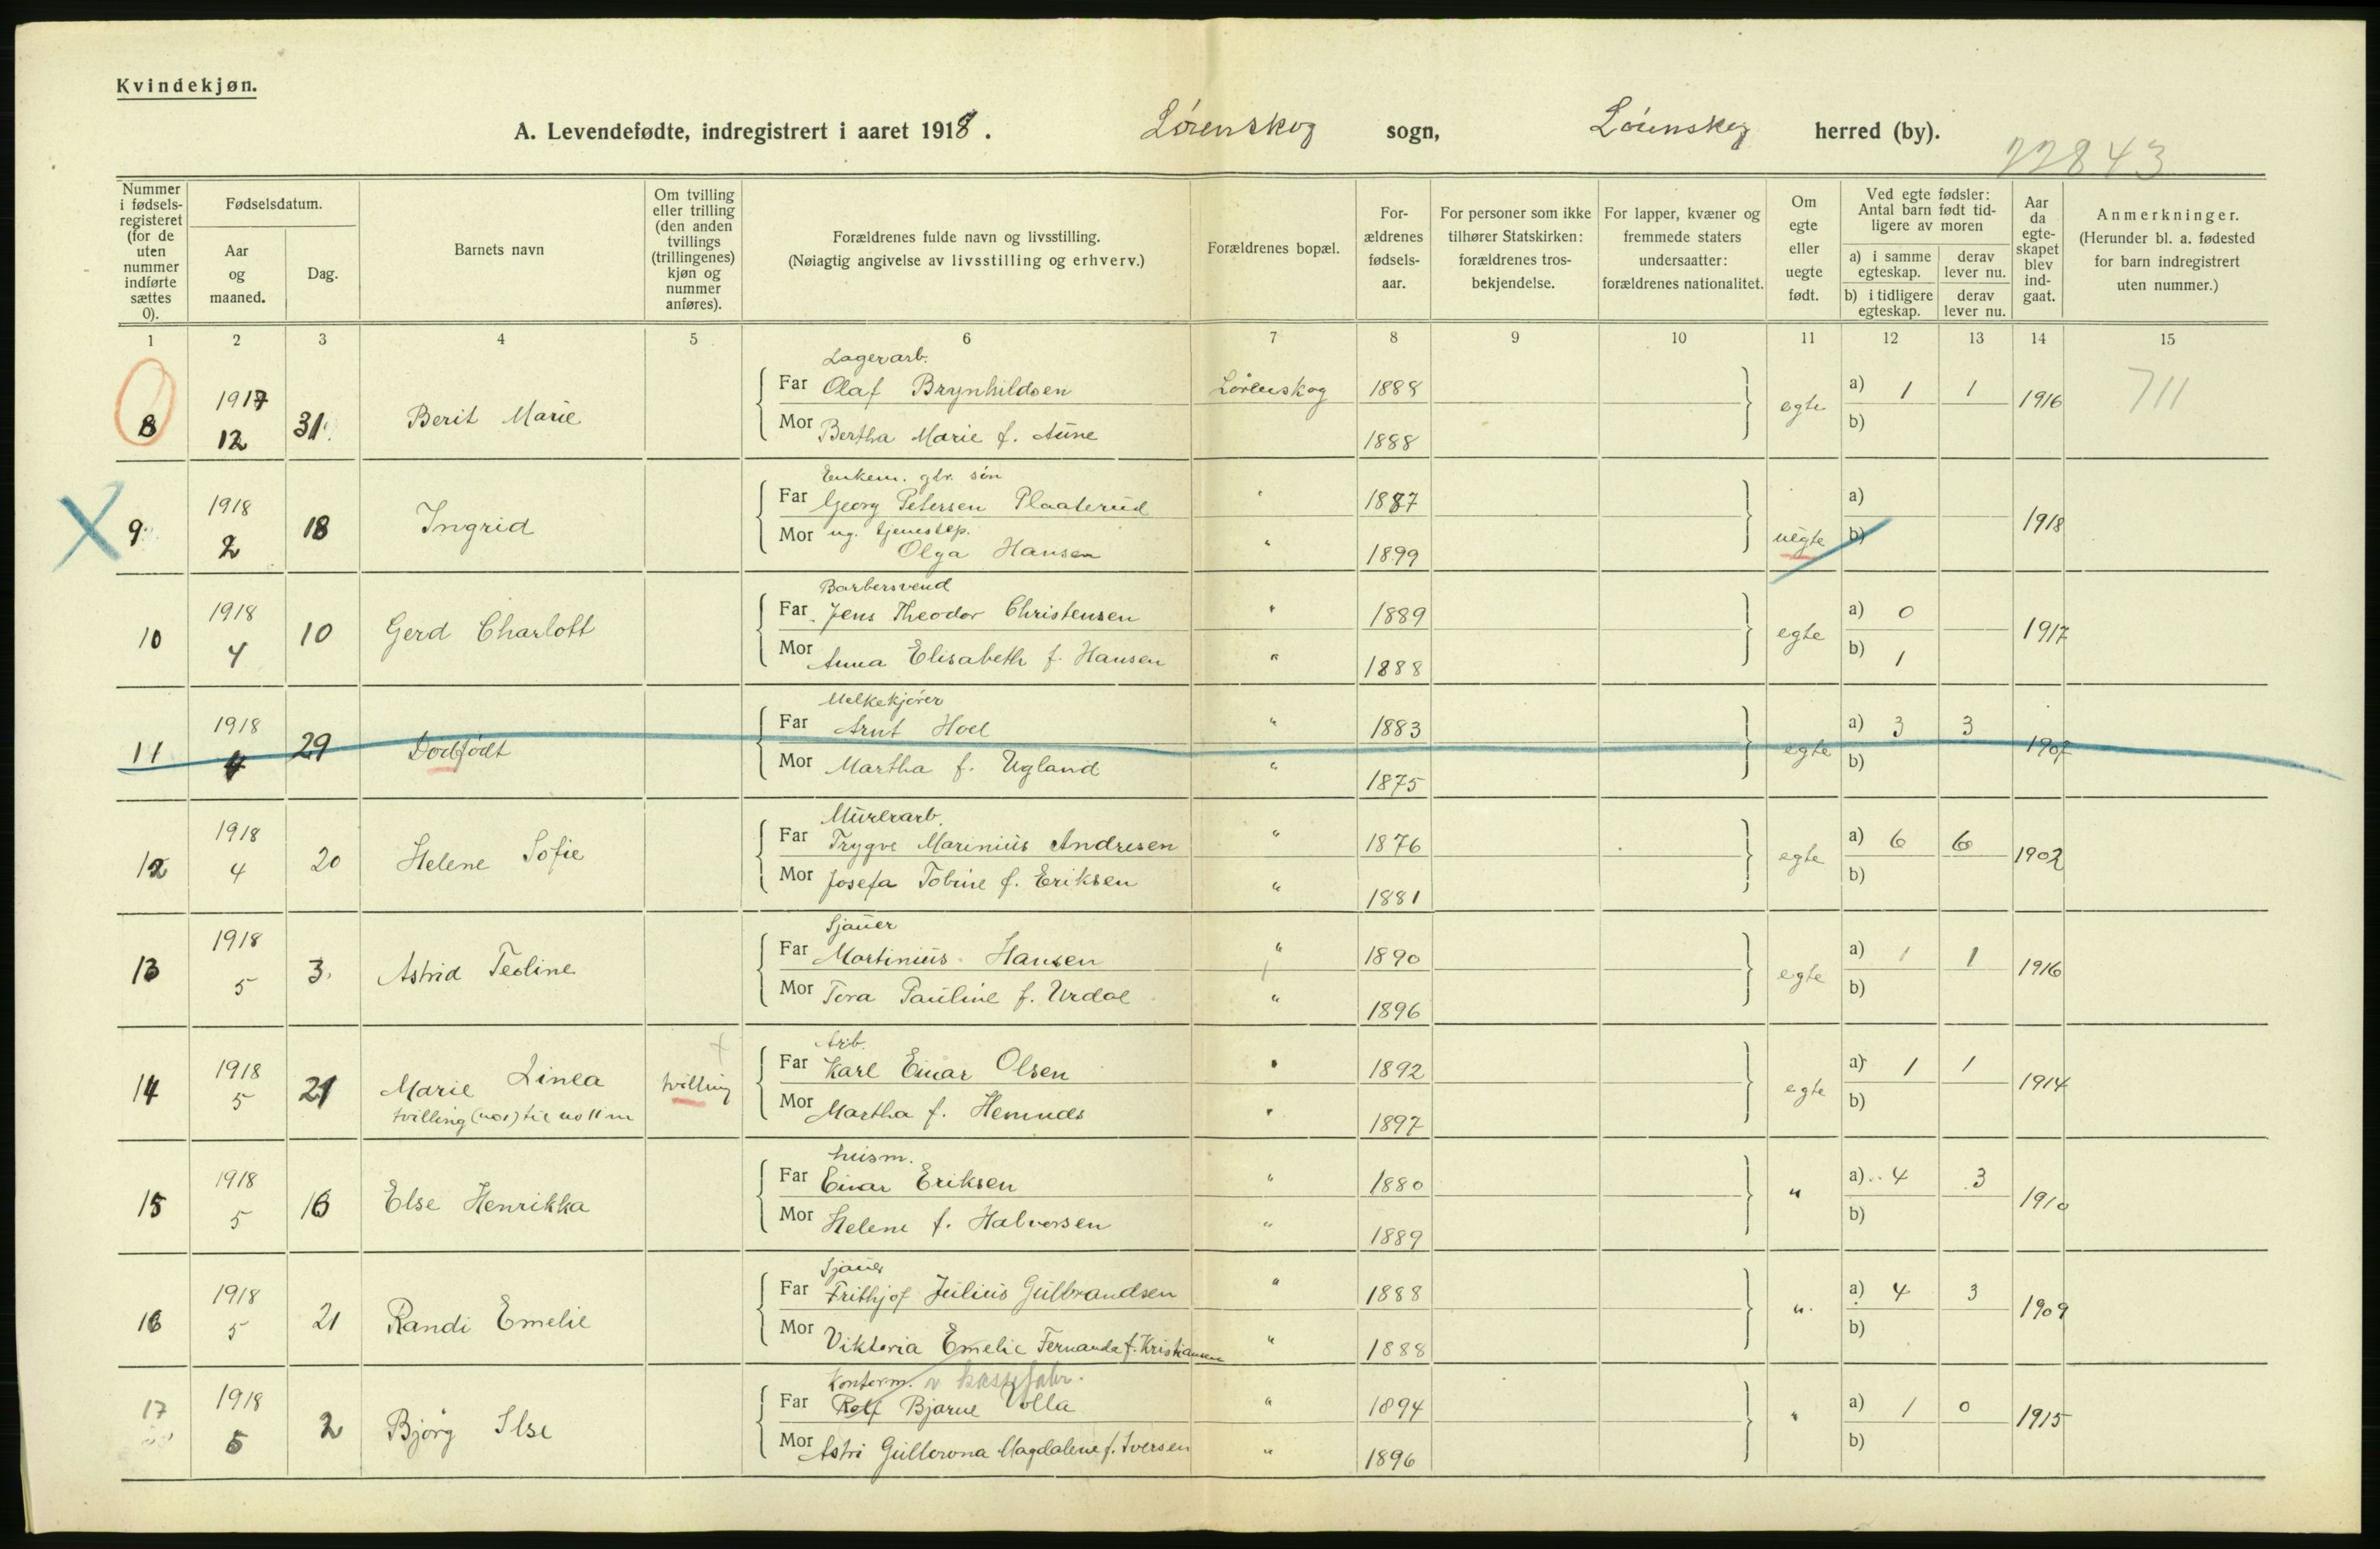 Kvindekjøn.
A. Levendefødte, indregistrert i aaret 1918. Lørenskog sogn, Lørenskog herred (by).
22843
Nummer i fødselsregisteret (for de uten nummer indførte sættes 0).
Fødselsdatum.
Aar og maaned.
Dag.
Barnets navn
Om tvilling eller trilling (den anden tvillings (trillingenes) kjøn og nummer anføres).
Forældrenes fulde navn og livsstilling.
(Nøiagtig angivelse av livsstilling og erhverv.)
Forældrenes bopæl.
Forældrenes fødselsaar.
For personer som ikke tilhører Statskirken: forældrenes trosbekjendelse.
For lapper, kvæner og fremmede staters undersaatter: forældrenes nationalitet.
Om egte eller uegte født.
Ved egte fødsler: Antal barn født tidligere av moren
a) i samme egteskap. derav lever nu.
b) i tidligere egteskap. derav lever nu.
Aar da egteskapet blev indgaat.
Anmerkninger.
(Herunder bl. a. fødested for barn indregistrert uten nummer.)
1 2 3 4 5 6 7 8 9 10 11 12 13 14 15
Lagerarb.
8 1917 12 31 Berit Marie Far Olaf Brynhildsen Lørenskog 1888 egte a) 1 1 1916 711
Mor Bertha Marie f. Aune 1888 b)
Enkem. gbr. søn
9 1918 2 18 Ingrid Far Georg Petersen Plaaterud " 1887 uegte a) 1918
Mor ug. tjenestep.
Olga Hansen " 1899 b)
Barbersvend
10 1918 4 10 Gerd Charlott Far Jens Theodor Christensen " 1889 egte a) 0 1917
Mor Anna Elisabeth f. Hansen " 1888 b) 1
Melkekjører
11 1918 4 29 Dødfødt Far Arnt Hoel " 1883 egte a) 3 3 1907
Mor Martha f. Ugland " 1875 b)
Murerarb.
12 1918 4 20 Helene Sofie Far Trygve Marinius Andresen " 1876 egte a) 6 6 1902
Mor Josefa Tobine f. Eriksen " 1881 b)
Sjauer
13 1918 5 3. Astrid Teoline Far Martinius Hansen " 1890 egte a) 1 1 1916
Mor Tora Pauline f. Urdal " 1896 b)
Arb.
14 1918 5 21 Marie Linea tvilling Far Karl Einar Olsen " 1892 egte a) 1 1 1914
tvilling (no 1) til no 11 m
Mor Martha f. Hemnds " 1897 b)
husm.
15 1918 5 16 Else Henrikka Far Einar Eriksen " 1880 " a) 4 3 1910
Mor Helene f. Halvorsen " 1889 b)
Sjauer
16 1918 5 21 Randi Emelie Far Frithjof Julius Gulbrandsen " 1888 " a) 4 3 1909
Mor Viktoria Emelie Fernanda f. Kristiansen " 1888 b)
Kontorm.
17 1918 5 2 Bjørg Ilse Far Rolf Bjarne Volla " 1894 " a) 1 0 1915
Mor Astri Gullorona Magdalene f. Iversen " 1896 b)